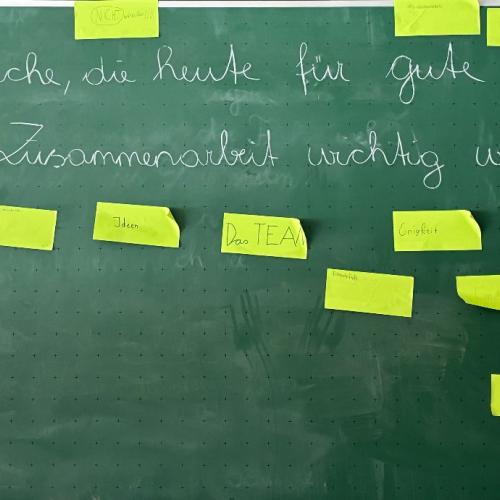 NICHT
che, die heute für gute
Zusammenarbeit wichtig w
Ideen
Das TEAM
Einigkeit